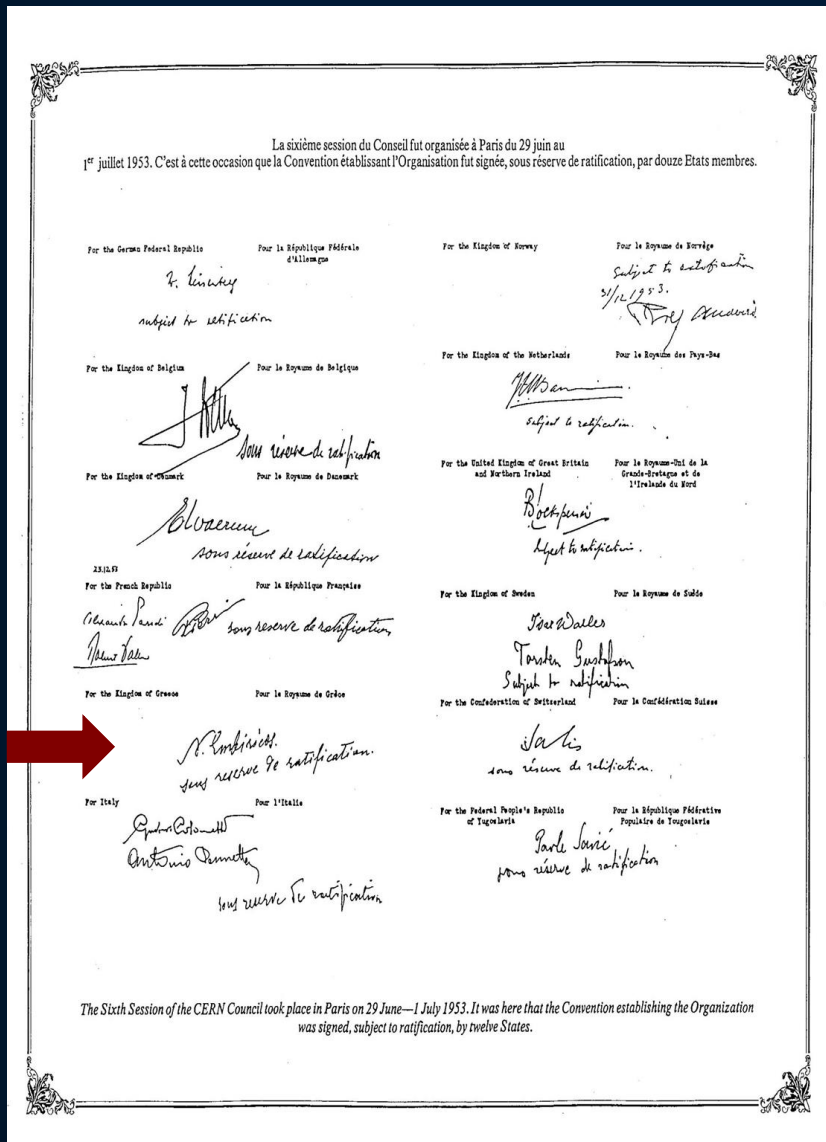 La sixième session du Conseil fut organisée à Paris du 29 juin au
1er juillet 1953. C'est à cette occasion que la Convention établissant l'Organisation fut signée, sous réserve de ratification, par douze Etats membres.
For the German Federal Republic
Pour la République Fédérale
d'Allemagne
subject to ratification
For the Kingdom of Belgium
Pour le Royaume de Belgique
sous réserve de ratification
For the Kingdom of Denmark
Pour le Royaume de Danemark
sous réserve de ratification
23.12.53
For the French Republic
Pour la République Française
sous reserve de ratification
For the Kingdom of Greece
Pour le Royaume de Grèce
N. Embiricos.
sous reserve de ratification.
For Italy
Pour l'Italie
Antonio
sous reserve de ratification
For the Kingdom of Norway
Pour le Royaume de Norvège
Subject to ratification
31/12 1953.
For the Kingdom of the Netherlands
Pour le Royaume des Pays-Bas
subject to ratification.
For the United Kingdom of Great Britain
and Northern Ireland
Pour le Royaume-Uni de la
Grande-Bretagne et de
l'Irelande du Nord
subject to ratification.
For the Kingdom of Sweden
Pour le Royaume de Suède
Ivar Waller
Torsten Gustafson
Subject to ratification
For the Confederation of Switzerland
Pour la Confédération Suisse
Salis
sous réserve de ratification.
For the Federal People's Republic
of Yugoslavia
Pour la République Fédérative
Populaire de Yougoslavie
Pavle Savić
sous réserve de ratification
The Sixth Session of the CERN Council took place in Paris on 29 June—1 July 1953. It was here that the Convention establishing the Organization
was signed, subject to ratification, by twelve States.